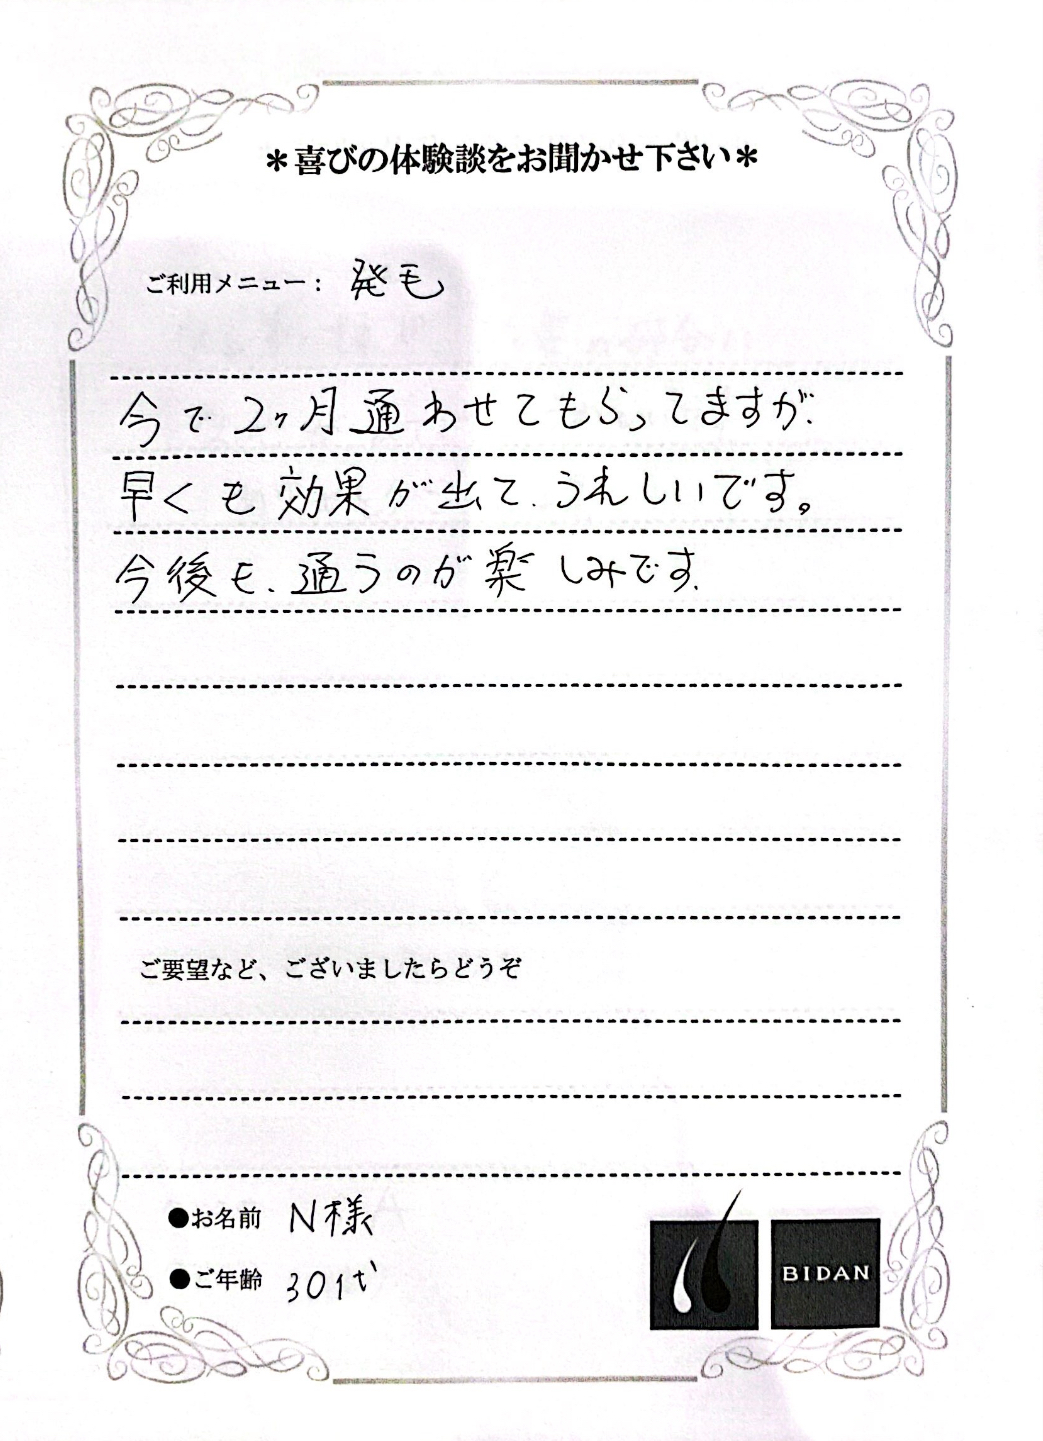 ＊喜びの体験談をお聞かせ下さい＊
ご利用メニュー： 発毛
今で2ヶ月通わせてもらってますが、
早くも効果が出て、うれしいです。
今後も、通うのが楽しみです。
ご要望など、ございましたらどうぞ
●お名前 N様
●ご年齢 30代
BIDAN